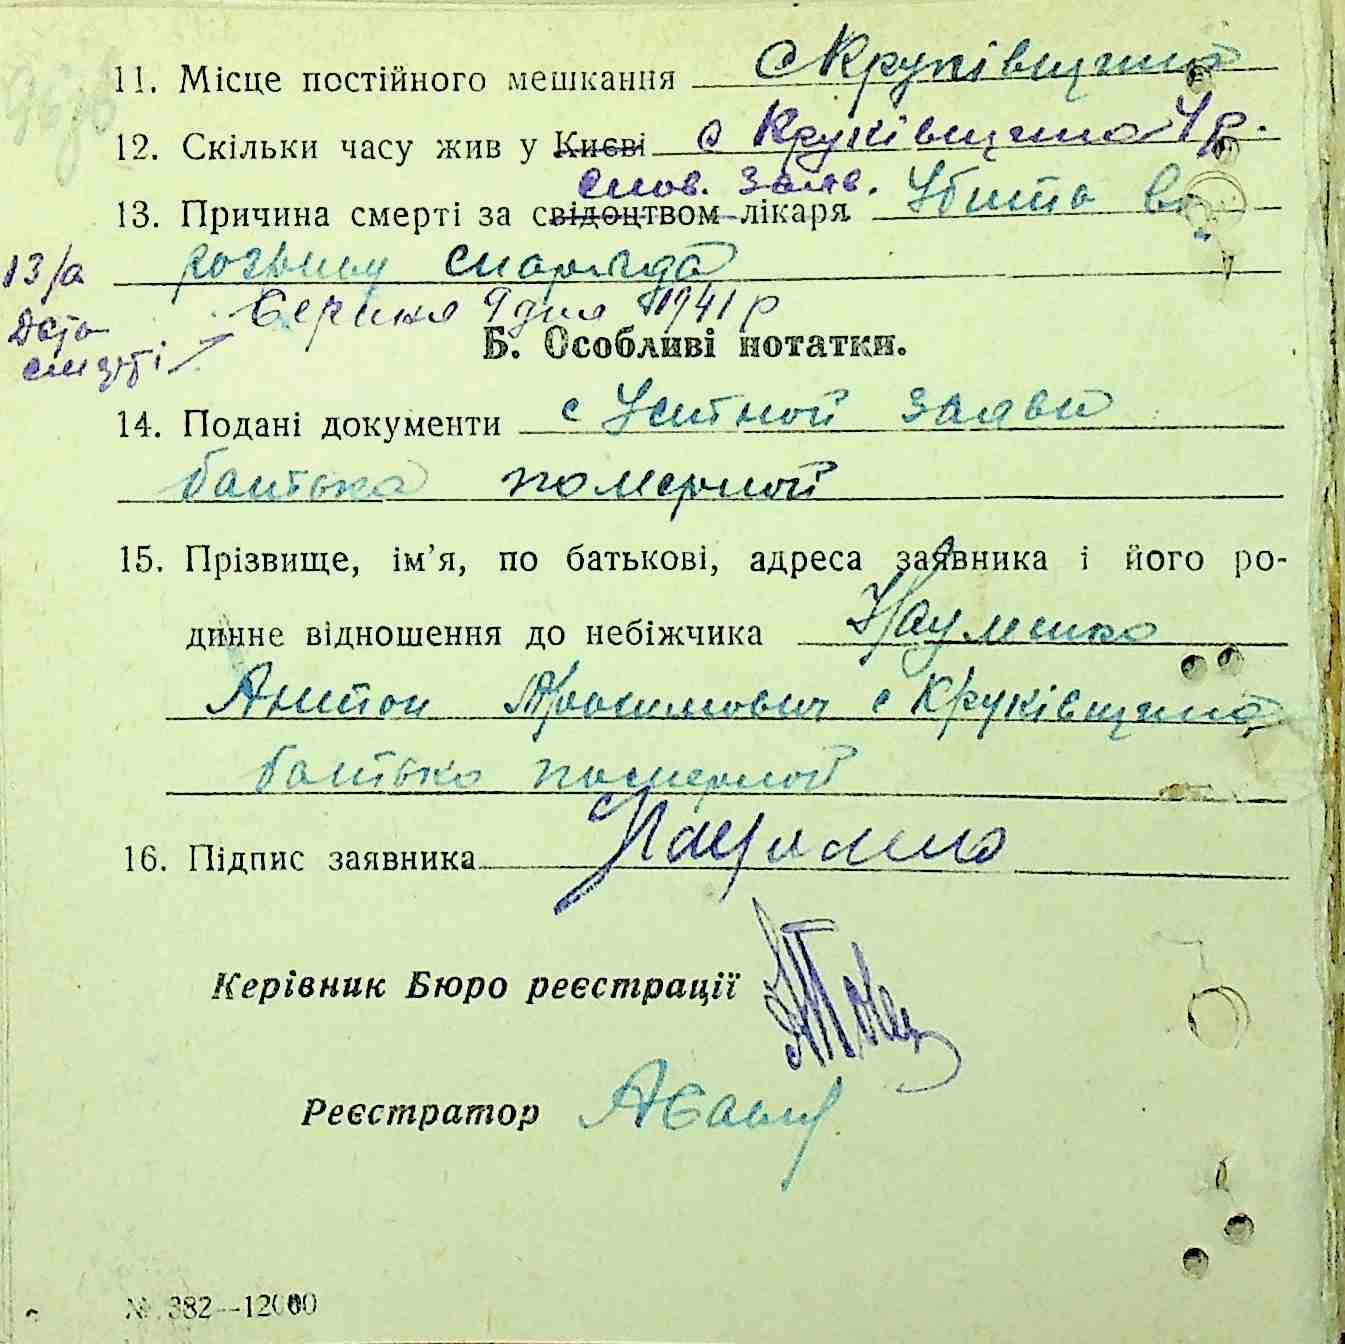 11. Місце постійного мешкання с Круківщина
12. Скільки часу жив у Києві с Круківщина 4 р.
слов. заяв.
13. Причина смерті за свідоцтвом лікаря Убита
13/а розриву снаряда
Дата смерті Серпня 9 дня 1941 р
Б. Особливі нотатки.
14. Подані документи с Устной заяви
батька померлой
15. Прізвище, ім’я, по батькові, адреса заявника і його ро-
динне відношення до небіжчика Науменко
Антон с Круківщина
батько померлой
16. Підпис заявника
Керівник Бюро реєстрації
Реєстратор
№ 382—12000